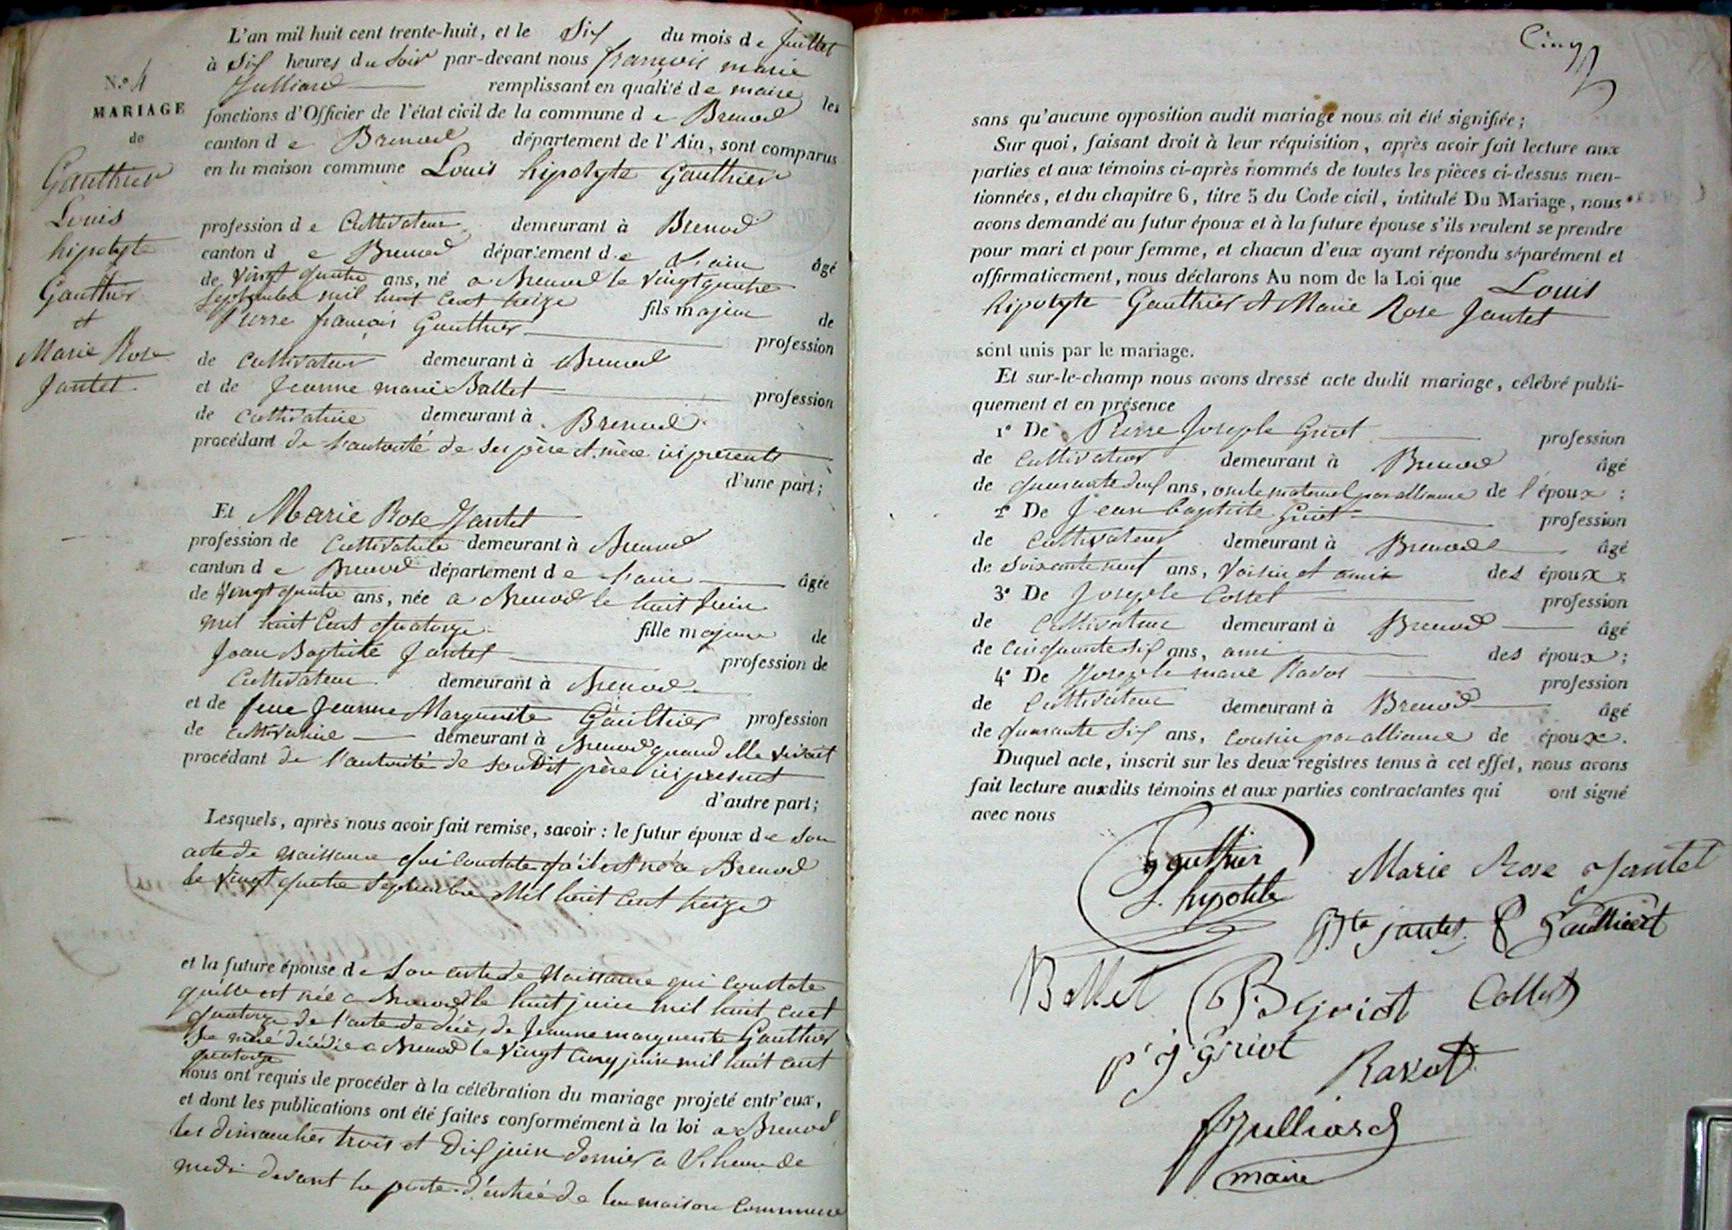 L'an mil huit cent trente-huit, et le Six du mois de Juillet
à Six heures du Soir par-devant nous françois marie
Julliard remplissant en qualité de maire les
fonctions d'Officier de l'état civil de la commune de Brenod
canton de Brenod département de l'Ain, sont comparus
en la maison commune Louis hipolyte Gauthier
N.º 4
MARIAGE
de
Gauthier
Louis
hipolyte
Gauthier
et
Marie Rose
Jantet
profession de Cultivateur demeurant à Brenod
canton de Brenod département de l'ain âgé
de vingt quatre ans, né a Brenod le vingt quatre
Septembre mil huit cent treize fils majeur de
Pierre françois Gauthier profession
de cultivateur demeurant à Brenod
et de Jeanne marie Ballet profession
de cultivatrice demeurant à Brenod
procédant de l'autorité de ses père et mère ici présents
d'une part;
Et Marie Rose Jantet
profession de Cultivatrice demeurant à Brenod
canton de Brenod département de l'ain âgée
de vingt quatre ans, née a Brenod le huit Juin
mil huit Cent quatorze fille majeure de
Jean Baptiste Jantet profession de
Cultivateur demeurant à Brenod
et de feue Jeanne Marguerite Gauthier profession
de cultivatrice demeurant à Brenod quand elle vivait
procédant de l'autorité de son Dit père ici présent
d'autre part;
Lesquels, après nous avoir fait remise, savoir : le futur époux de son
acte de naissance qui constate qu'il est né a Brenod
le vingt quatre Septembre Mil huit cent treize
et la future épouse de Son acte de Naissance qui constate
qu'elle est née a Brenod le huit juin mil huit cent
quatorze de l'acte de décès de Jeanne marguerite Gauthier
Sa mère décédée a Brenod le vingt cinq juin mil huit cent
quatorze
nous ont requis de procéder à la célébration du mariage projeté entr'eux,
et dont les publications ont été faites conformément à la loi a Brenod
les dimanches trois et Dix juin dernier a l'heure de
midi devant la porte d'entrée de la maison commune
Cinq
sans qu'aucune opposition audit mariage nous ait été signifiée;
Sur quoi, faisant droit à leur réquisition, après avoir fait lecture aux
parties et aux témoins ci-après nommés de toutes les pièces ci-dessus men-
tionnées, et du chapitre 6, titre 5 du Code civil, intitulé Du Mariage, nous
avons demandé au futur époux et à la future épouse s'ils veulent se prendre
pour mari et pour femme, et chacun d'eux ayant répondu séparément et
affirmativement, nous déclarons Au nom de la Loi que Louis
hipolyte Gauthier et Marie Rose Jantet
sont unis par le mariage.
Et sur-le-champ nous avons dressé acte dudit mariage, célébré publi-
quement et en présence
1º De Pierre Joseph Griot profession
de Cultivateur demeurant à Brenod âgé
de ans, oncle maternel par alliance de l'époux ;
2º De Jean baptiste Griot profession
de Cultivateur demeurant à Brenod âgé
de soixante neuf ans, voisin et ami des époux ;
3º De Joseph Collet profession
de Cultivateur demeurant à Brenod âgé
de cinquante six ans, ami des époux ;
4º De Joseph marie Ravot profession
de Cultivateur demeurant à Brenod âgé
de quarante six ans, cousin par alliance de époux.
Duquel acte, inscrit sur les deux registres tenus à cet effet, nous avons
fait lecture auxdits témoins et aux parties contractantes qui ont signé
avec nous
gauthier
L. hypolite
Marie Rose Jantet
Bte jantet
Gauthier
Ballet
B Griot
Collet
P J Griot
Ravot
Julliard
maire